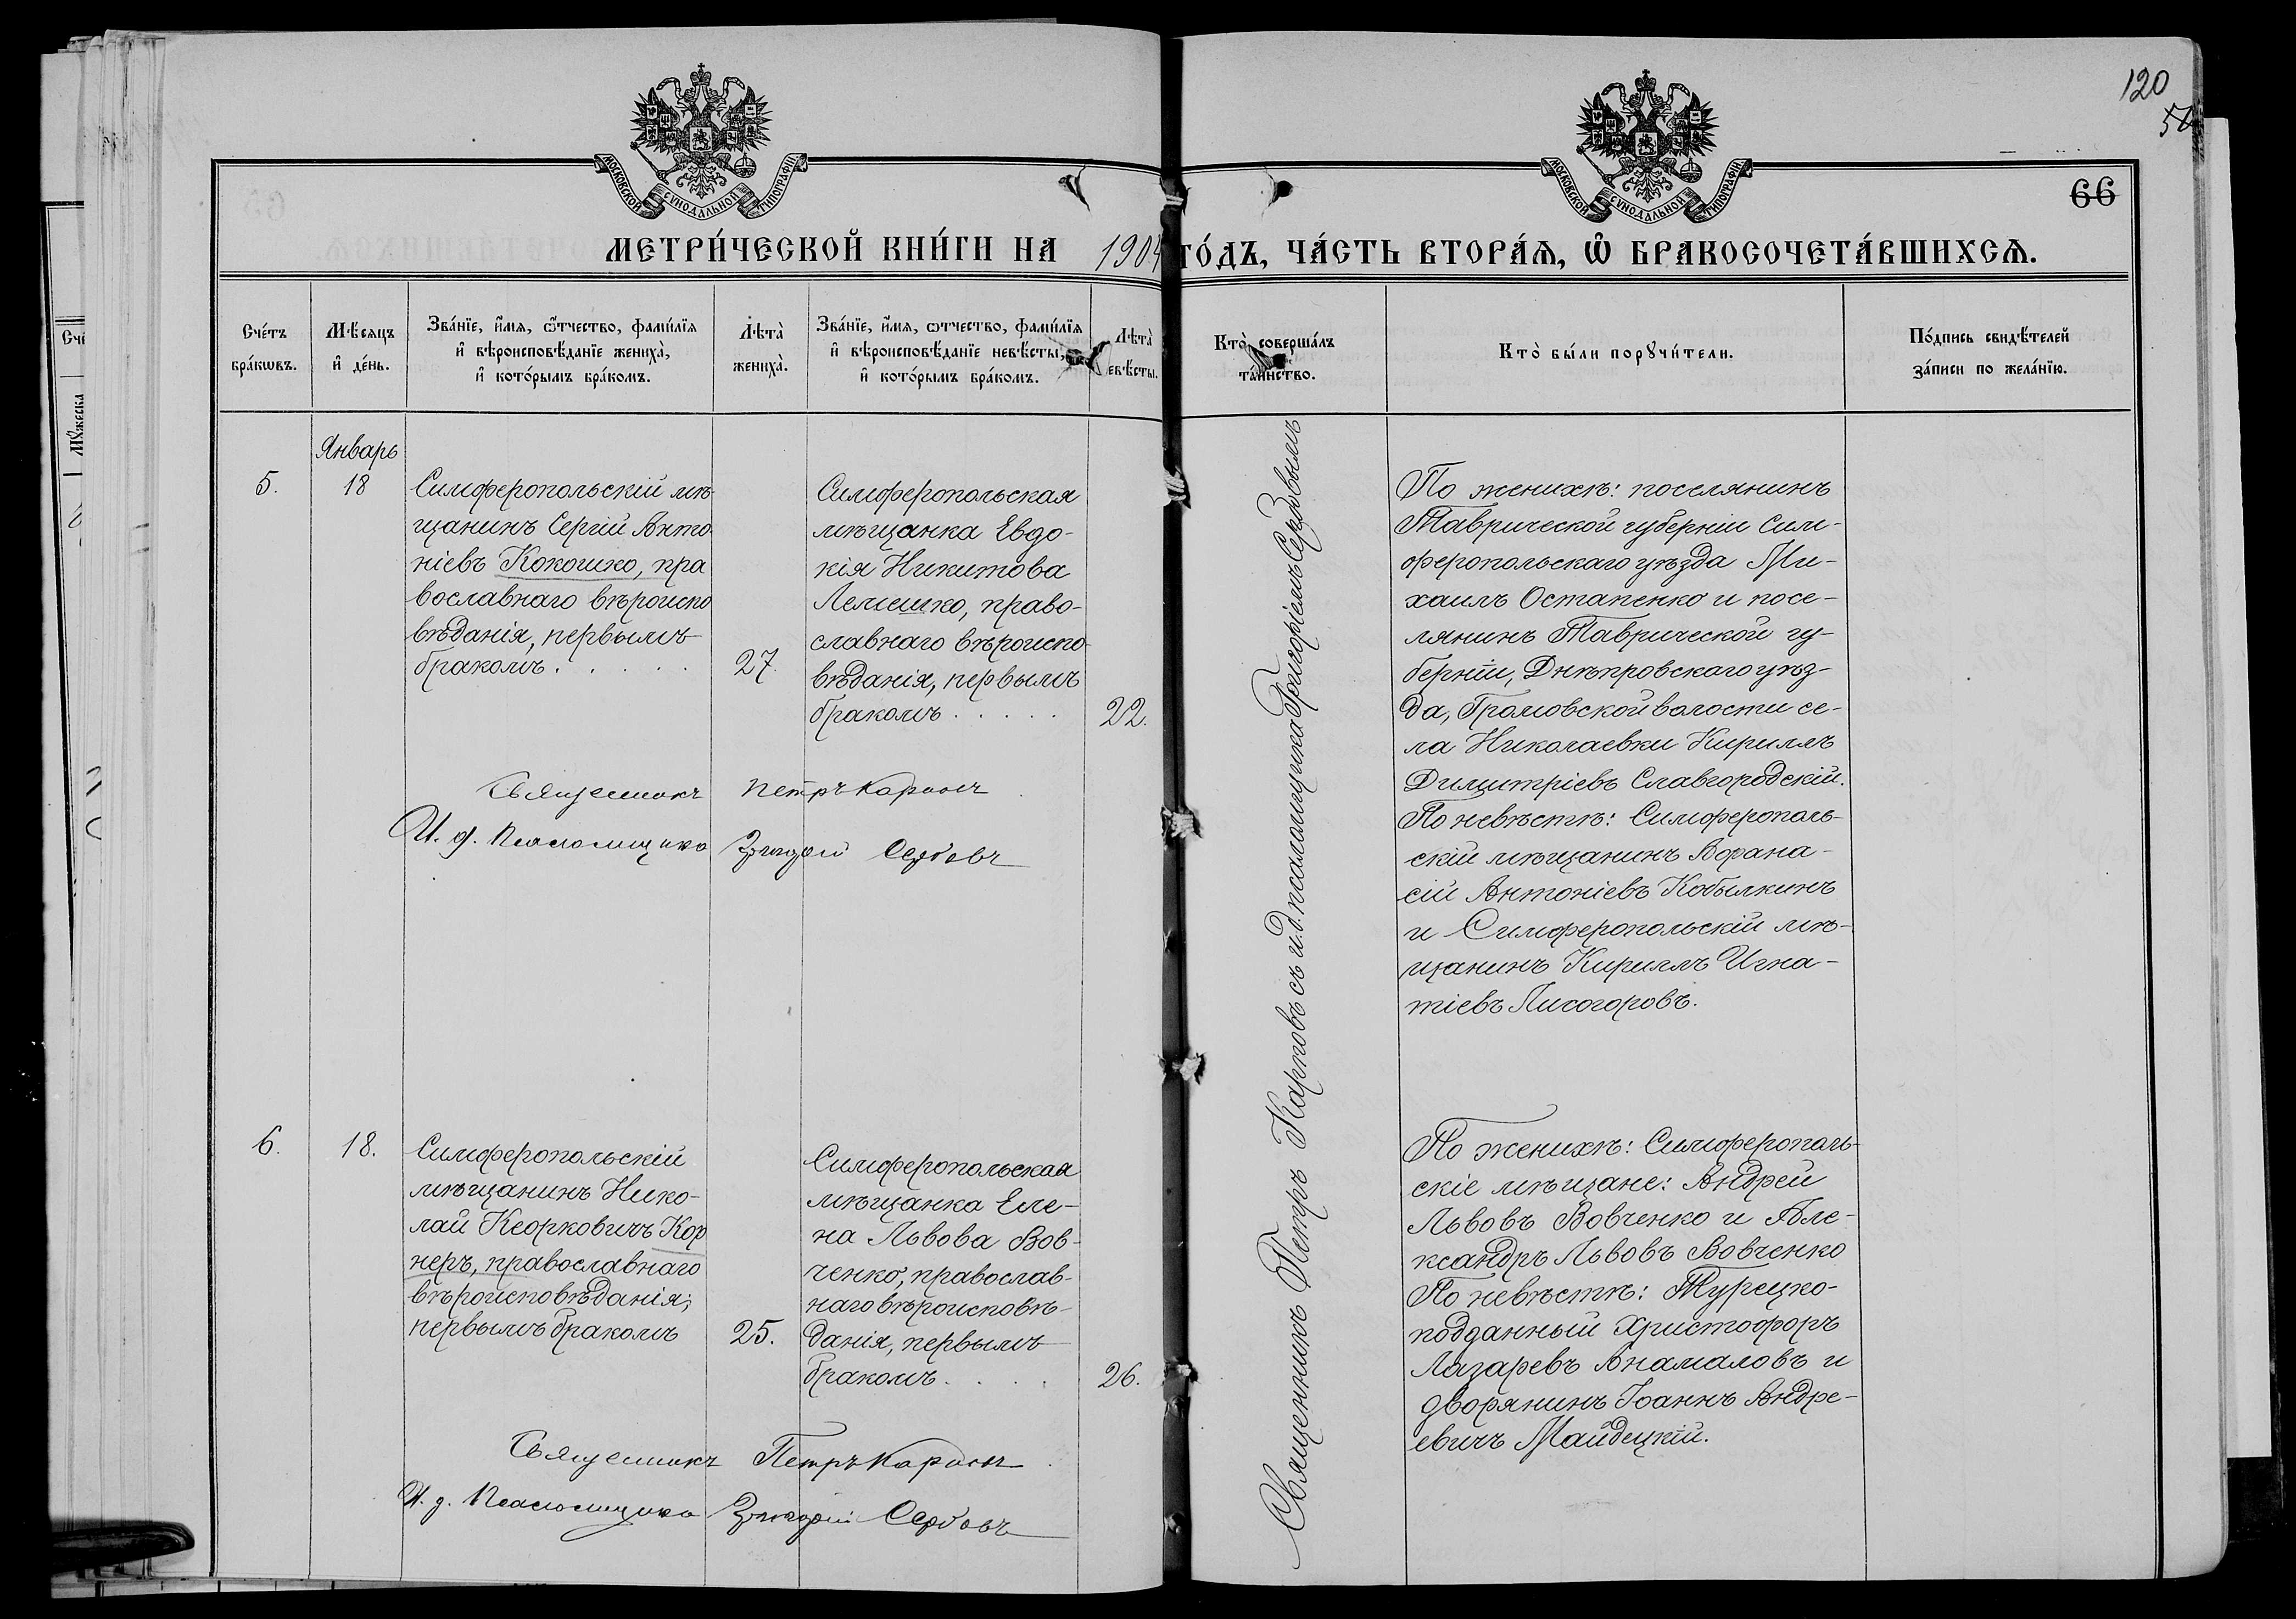 120
66
МОСКОВСКОЙ СѴНОДАЛЬНОЙ ТИПОГРАФІИ
МОСКОВСКОЙ СѴНОДАЛЬНОЙ ТИПОГРАФІИ
МЕТРИ́ЧЕСКОЙ КНИ́ГИ НА 1904 ГО́ДЪ, ЧА́СТЬ ВТОРА́Ѧ, Ѽ БРАКОСОЧЕТА́ВШИХСѦ.
Сче́тъ
бра́кѡвъ.
Мѣ́сяцъ
и҆ де́нь.
Зва́нїе, и҆́мѧ, ѻ҆́тчество, фами́лїѧ
и҆ вѣроисповѣ́данїе жениха̀,
и҆ кото́рымъ бра́комъ.
Лѣта̀
жениха̀.
Зва́нїе, и҆́мѧ, ѡтчество, фами́лїѧ
и҆ вѣроисповѣ́данїе невѣ́сты,
и҆ кото́рымъ бра́комъ.
Лѣта̀
евѣ́сты.
Кто̀ соверша́лъ
та́инство.
Кто̀ бы́ли порꙋчи́тели.
По́дпись свидѣ́телей
за́писи по жела́нїю.
Январь
5.
18
Симферопольскій мѣ-
щанинъ Сергій Анто-
ніевъ Кокошко, пра
вославнаго вѣроиспо
вѣданія, первымъ
бракомъ . . . . .
27.
Симферопольская
мѣщанка Евдо-
кія Никитова
Лемешко, право-
славнаго вѣроиспо-
вѣданія, первымъ
бракомъ . . . . .
22.
Священникъ Петръ Карповъ
И. д. Псаломщика Григорій Сербовъ
Священникъ Петръ Карповъ съ и.д. псаломщика Григоріемъ Сербовымъ
По женихѣ: поселянинъ
Таврической губерніи Сим-
феропольскаго уѣзда Ми-
хаилъ Остапенко и посе-
лянинъ Таврической гу-
берніи, Днѣпровскаго уѣз-
да, Громовской волости се-
ла Николаевки Кириллъ
Димитріевъ Славгородскій.
По невѣстѣ: Симферополь-
скій мѣщанинъ Афана-
сій Антоніевъ Кобылкинъ
и Симферопольскій мѣ-
щанинъ Кириллъ Игна-
тіевъ Лисогоровъ.
6.
18.
Симферопольскій
мѣщанинъ Нико-
лай Кеорковичъ Кор
неръ, православнаго
вѣроисповѣданія;
первымъ бракомъ
25.
Симферопольская
мѣщанка Еле-
на Львова Вов-
ченко, православ-
наго вѣроисповѣ-
данія, первымъ
бракомъ . . . .
26.
Священникъ Петръ Карповъ
И. д. Псаломщика Григорій Сербовъ
По женихѣ: Симферополь-
скіе мѣщане: Андрей
Львовъ Вовченко и Але-
ксандръ Львовъ Вовченко
По невѣстѣ: Турецко-
подданный Христофоръ
Лазаревъ Анамаловъ и
дворянинъ Іоаннъ Андре-
евичъ Майдецкій.